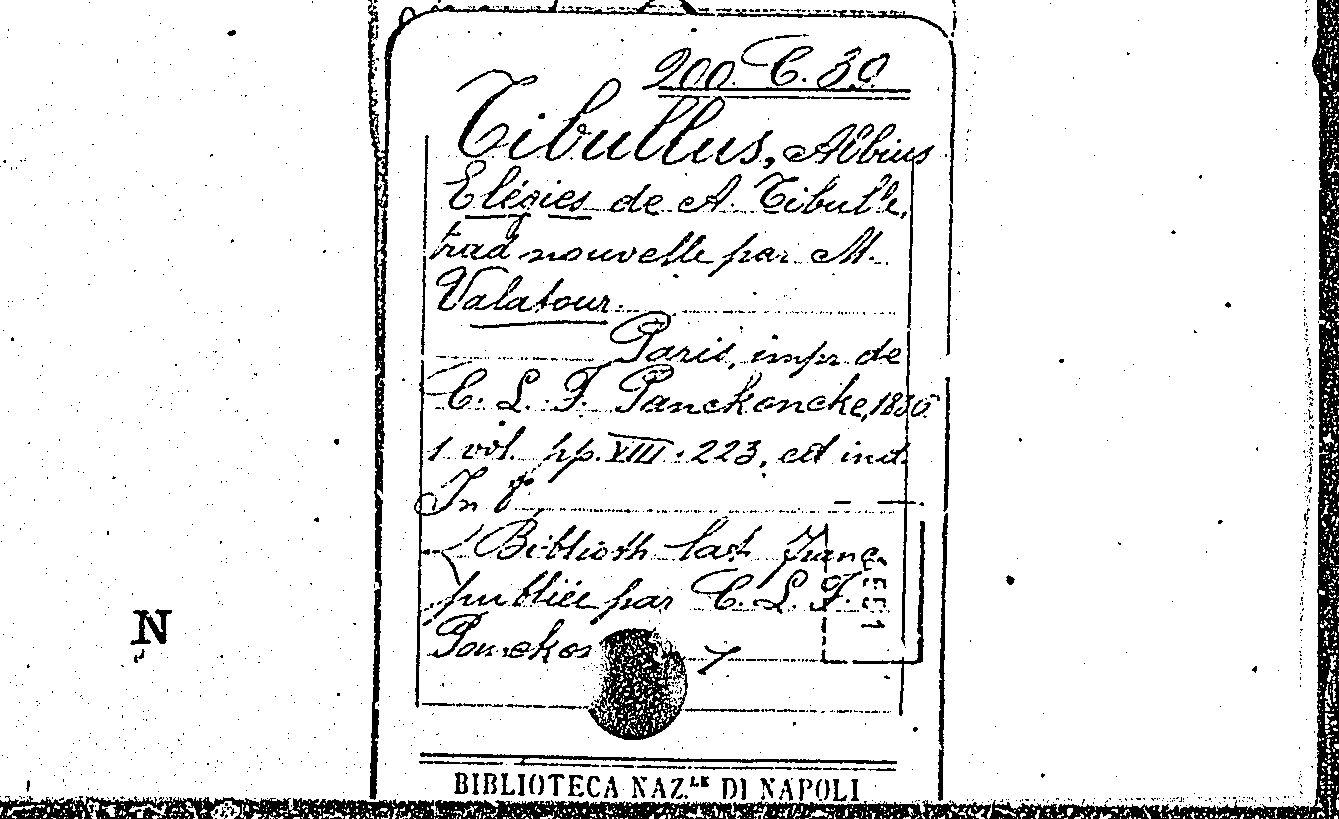 200. C. 39
Tibullus, Albius
Elégies de A. Tibulle,
trad nouvelle par M.
Valatour.
Paris, impr de
C. L. F. Panckoncke, 1836
1 vol. pp. VIII. 223, ed ind.
In 8°
Biblioth lat. Franc.
publiée par C. L. F.
Panckou
N
BIBLIOTECA NAZ.LE DI NAPOLI